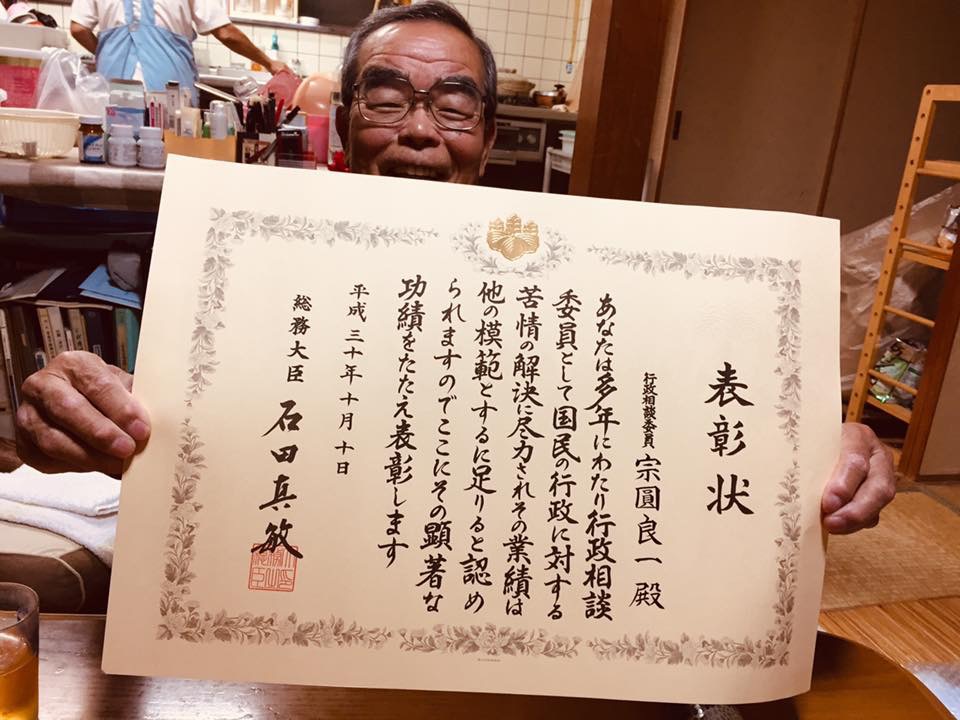 表彰状
行政相談委員 宗圓良一 殿
あなたは多年にわたり行政相談
委員として国民の行政に対する
苦情の解決に尽力されその業績は
他の模範とするに足りると認め
られますのでここにその顕著な
功績をたたえ表彰します
平成三十年十月十日
総務大臣 石田真敏